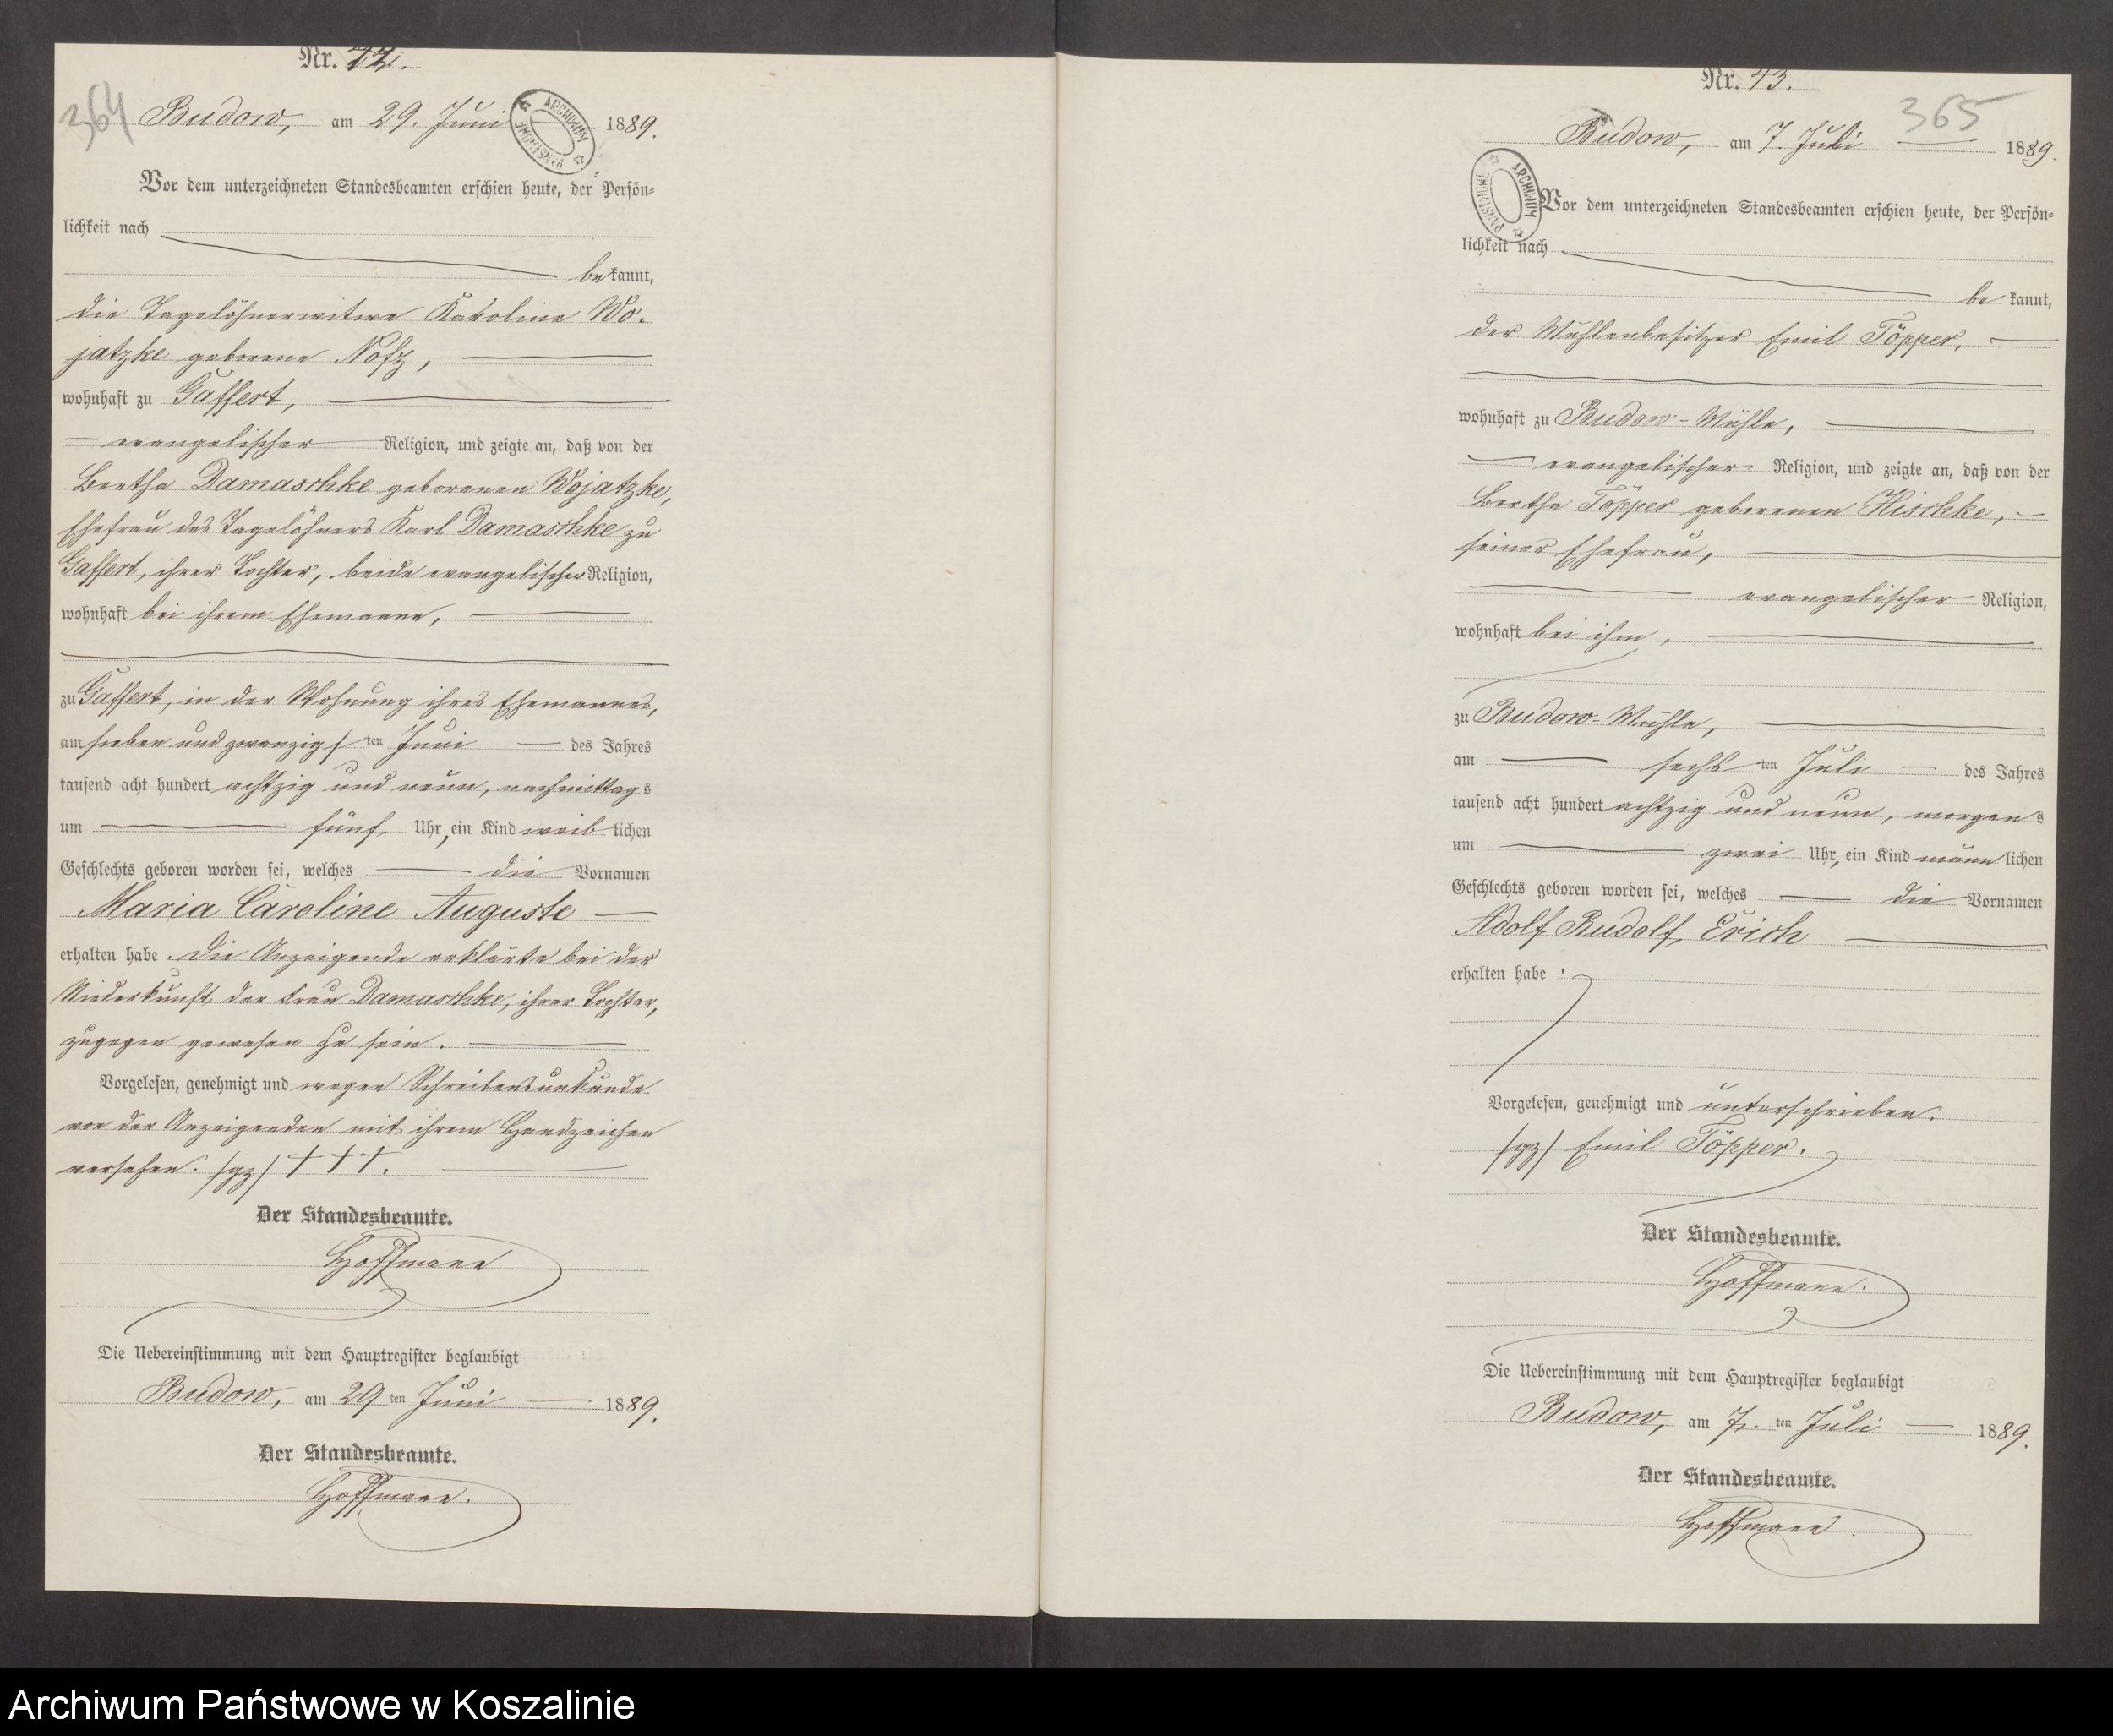 Nr. 42.
364
Budow, am 29. Juni 1889.
ARCHIWUM PAŃSTWOWE
Vor dem unterzeichneten Standesbeamten erschien heute, der Persön=
lichkeit nach
bekannt,
die Tagelöhnerwitwe Karoline Wo-
jatzke geborene Nofz,
wohnhaft zu Gaffert,
evangelischer Religion, und zeigte an, daß von der
Bertha Damaschke geborenen Wojatzke,
Ehefrau des Tagelöhners Karl Damaschke zu
Gaffert, ihrer Tochter, beide evangelischer Religion,
wohnhaft bei ihrem Ehemanne,
zu Gaffert, in der Wohnung ihres Ehemannes,
am sieben und zwanzigsten Juni des Jahres
tausend acht hundert achtzig und neun, nachmittags
um fünf Uhr, ein Kind weiblichen
Geschlechts geboren worden sei, welches die Vornamen
Maria Caroline Auguste
erhalten habe. Die Anzeigende erklärte bei der
Niederkunft der Frau Damaschke, ihrer Tochter,
zugegen gewesen zu sein.
Vorgelesen, genehmigt und wegen Schreibensunkunde
von der Anzeigenden mit ihrem Handzeichen
versehen. /gz/ † † †.
Der Standesbeamte.
Hoffmann
Die Uebereinstimmung mit dem Hauptregister beglaubigt
Budow, am 29 ten Juni 1889.
Der Standesbeamte.
Hoffmann.
Nr. 43.
365
Budow, am 7. Juli 1889.
ARCHIWUM PAŃSTWOWE
Vor dem unterzeichneten Standesbeamten erschien heute, der Persön=
lichkeit nach
bekannt,
der Mühlenbesitzer Emil Töpper,
wohnhaft zu Budow-Mühle,
evangelischer Religion, und zeigte an, daß von der
Bertha Töpper geborenen Hischke,
seiner Ehefrau,
evangelischer Religion,
wohnhaft bei ihm,
zu Budow-Mühle,
am sechsten Juli des Jahres
tausend acht hundert achtzig und neun, morgens
um zwei Uhr, ein Kind männlichen
Geschlechts geboren worden sei, welches die Vornamen
Adolf Rudolf Erich
erhalten habe.
Vorgelesen, genehmigt und unterschrieben.
/gz/ Emil Töpper.
Der Standesbeamte.
Hoffmann.
Die Uebereinstimmung mit dem Hauptregister beglaubigt
Budow, am 7. ten Juli 1889.
Der Standesbeamte.
Hoffmann.
Archiwum Państwowe w Koszalinie